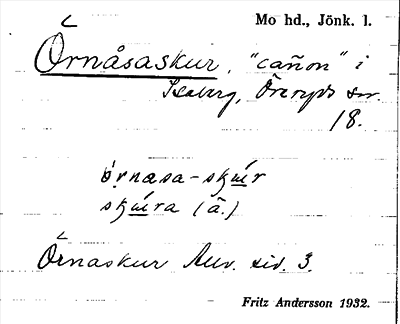 Mo hd., Jönk. l.
Örnåsaskur, "cañon" i
Isaberg, Öreryds sn.
18.
ǫ́rnasa-skúr
skúra (ã.)
Örnaskur Allv. sid. 3.
Fritz Andersson 1932.